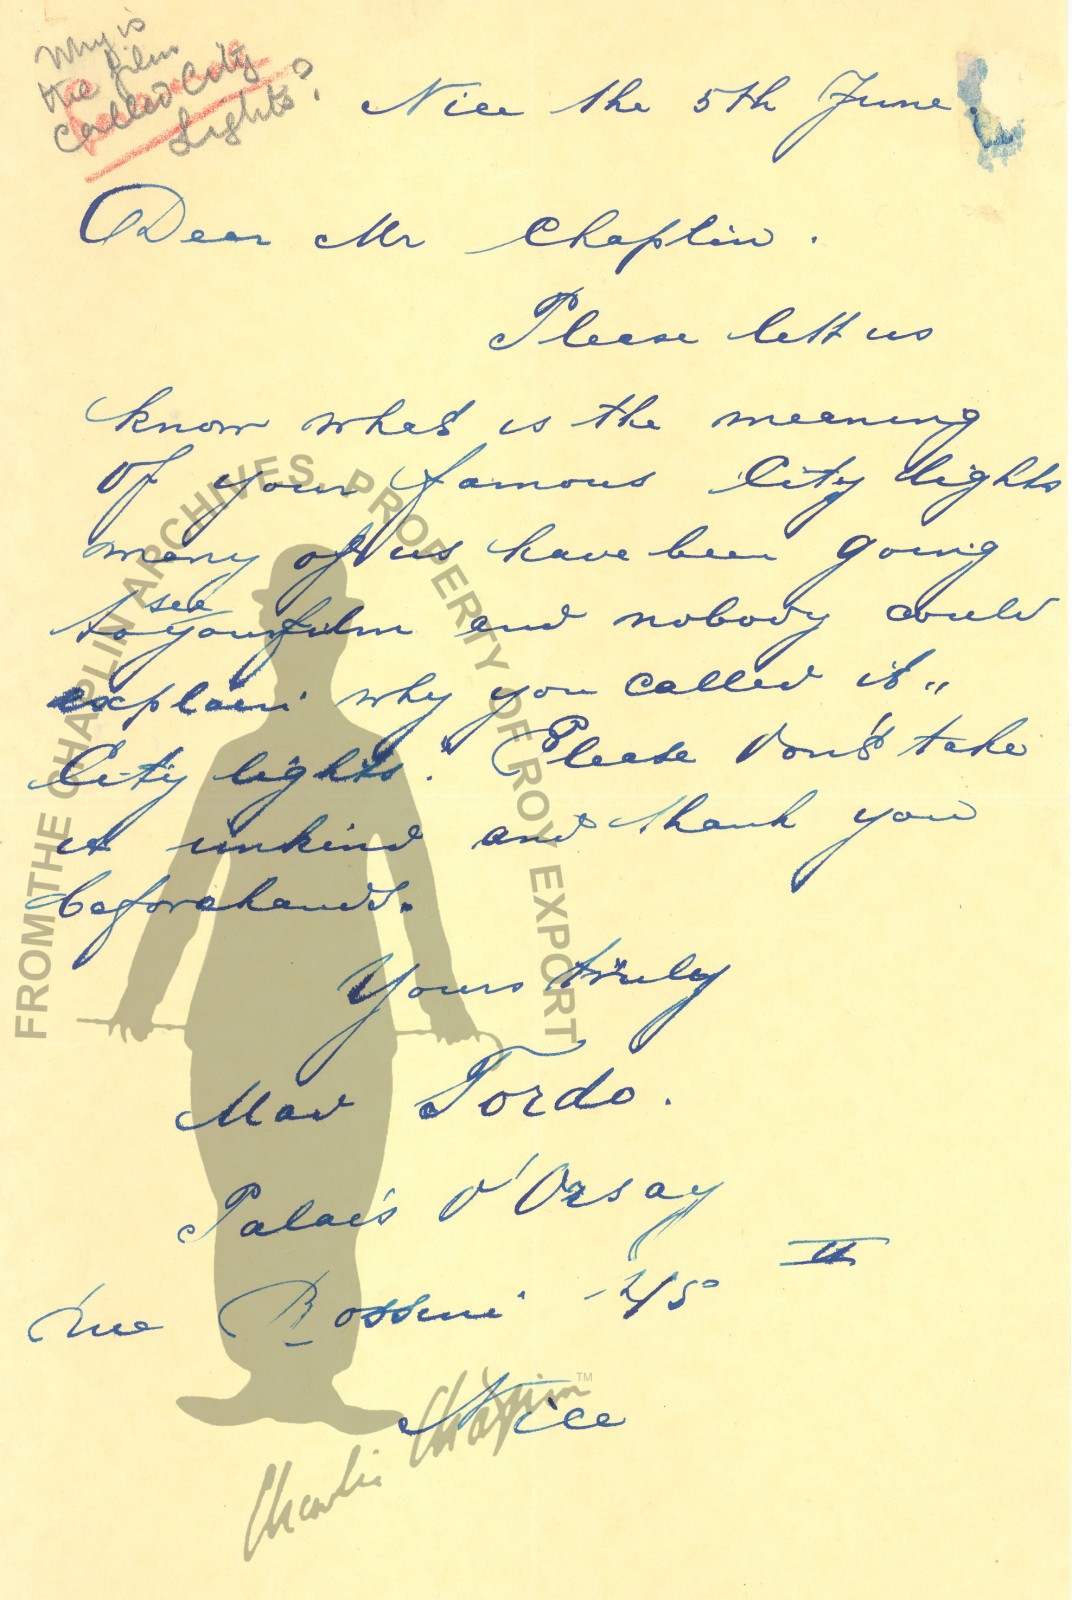 Why is
the film
called City
Lights?
Nice the 5th June.
Dear Mr Chaplin.
Please lett us
know what is the meaning
of your famous City lights
many of us have been going
to see your film and nobody could
explain why you called it „
City lights." Please don't take
it unkind and thank you
beforehand.
Yours truly
Mad Tordo.
Palais d'Orsay
rue Rossini 45 II
Nice
FROM THE CHAPLIN ARCHIVES. PROPERTY OF ROY EXPORT
Charlie Chaplin™